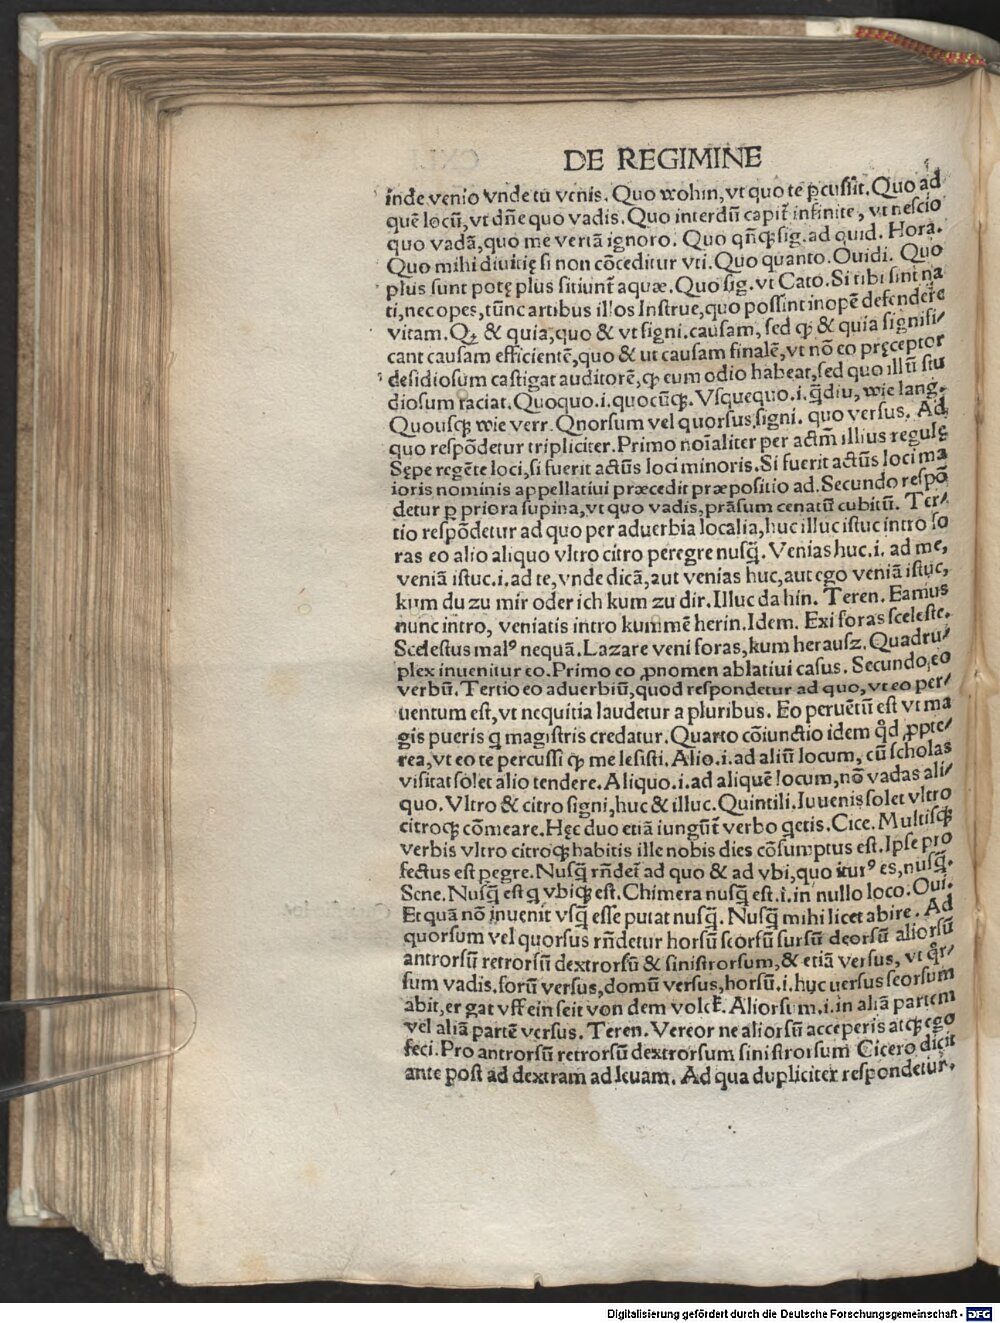 DE REGIMINE
inde venio vnde tu venis. Quo wohin, vt quo te ꝑcussit. Quo ad
quē locū, vt dn̄e quo vadis. Quo interdū capit̃ infinite, vt nescio
quo vadā, quo me vertā ignoro. Quo qn̄qꝫ sig. ad quid. Hora.
Quo mihi diuitię si non cōceditur vti. Quo quanto. Ouidi. Quo
plus sunt potę plus sitiunt̃ aquæ. Quo sig. vt Cato. Si tibi sint na
ti, nec opes, tūnc artibus illos Instrue, quo possint inopē defendere
vitam. Qꝫ & quia, quo & vt signi. causam, sed ꝙ & quia signifi/
cant causam efficientē, quo & ut causam finalē, vt nō eo pręceptor
desidiosum castigat auditorē, ꝙ eum odio habeat, sed quo illū stu
diosum faciat. Quoquo .i. quocūqꝫ. Vsquequo .i. q̄diu, wie lang.
Quousqꝫ wie verr. Quorsum vel quorsus signi. quo versus. Ad
quo respōdetur tripliciter. Primo noīaliter per actm̄ illius regulę
Sępe regēte loci, si fuerit actūs loci minoris. Si fuerit actūs loci ma
ioris nominis appellatiui præcedit præpositio ad. Secundo respō
detur ꝑ priora supina, vt quo vadis, prāsum cenatū cubitū. Ter/
tio respōdetur ad quo per aduerbia localia, huc illuc istuc intro fo
ras eo alio aliquo vltro citro peregre nusq̄. Venias huc .i. ad me,
veniā istuc .i. ad te, vnde dicā, aut venias huc, aut ego veniā istuc,
kum du zu mir oder ich kum zu dir. Illuc da hin. Teren. Eamus
nunc intro, veniatis intro kummē herin. Idem. Exi foras sceleste.
Scelestus malꝰ nequā. Lazare veni foras, kum herausz. Quadru/
plex inuenitur eo. Primo eo ꝓnomen ablatiui casus. Secundo, eo
verbū. Tertio eo aduerbiū, quod respondetur ad quo, vt eo per/
uentum est, vt nequitia laudetur a pluribus. Eo peruētū est vt ma
gis pueris q̄ magistris credatur. Quarto cōiunctio idem qd̄ ꝓpte/
rea, vt eo te percussi ꝙ me lesisti. Alio .i. ad aliū locum, cū scholas
visitat solet alio tendere. Aliquo .i. ad aliquē locum, nō vadas ali/
quo. Vltro & citro signi, huc & illuc. Quintili. Iuuenis solet vltro
citroqꝫ cōmeare. Hęc duo etiā iungūt̃ verbo q̄etis. Cice. Multisqꝫ
verbis vltro citroqꝫ habitis ille nobis dies cōsumptus est. Ipse pro
fectus est ꝑegre. Nusq̄ rn̄det̃ ad quo & ad vbi, quo iturꝰ es, nusq̄.
Sene. Nusq̄ est q̄ vbiqꝫ est. Chimera nusq̄ est .i. in nullo loco. Oui.
Et quā nō inuenit vsq̄ esse putat nusq̄. Nusq̄ mihi licet abire. Ad
quorsum vel quorsus rn̄detur horsū seorsū sursū deorsū aliorsū
antrorsū retrorsū dextrorsū & sinistrorsum, & etiā versus, vt q̊r/
sum vadis. forū versus, domū versus, horsū .i. huc uersus seorsum
abit, er gat vff ein seit von dem volck. Aliorsum .i. in aliā partem
vel aliā partē versus. Teren. Vereor ne aliorsū acceperis atqꝫ ego
feci. Pro antrorsū retrorsū dextrorsum sinistrorsum Cicero dicit
ante post ad dextram ad leuam. Ad qua dupliciter respondetur.
Digitalisierung gefördert durch die Deutsche Forschungsgemeinschaft - DFG